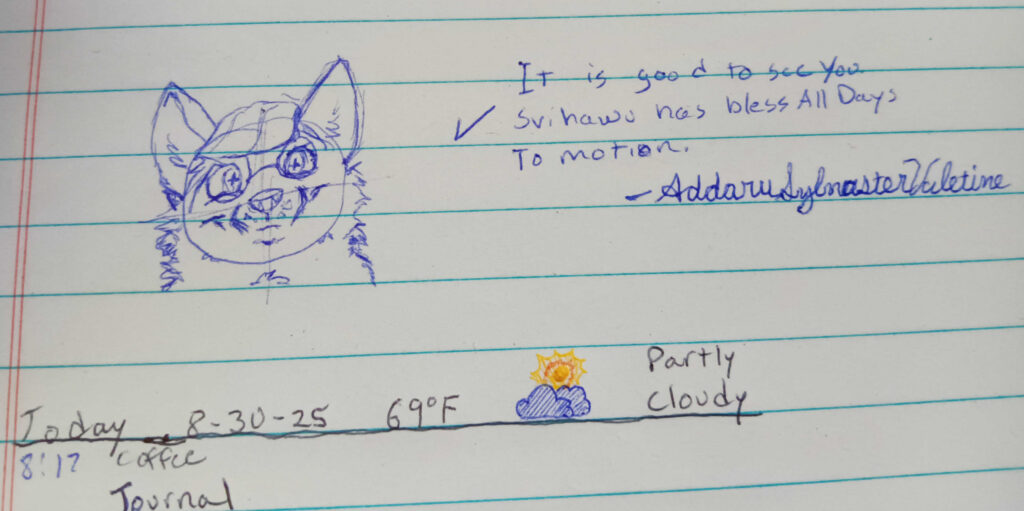 It is good to see You
Svihawu has bless All Days
To motion.
- Addaru Sylnaster
Today - 8-30-25 69°F Partly cloudy
8:17 coffee
Journal